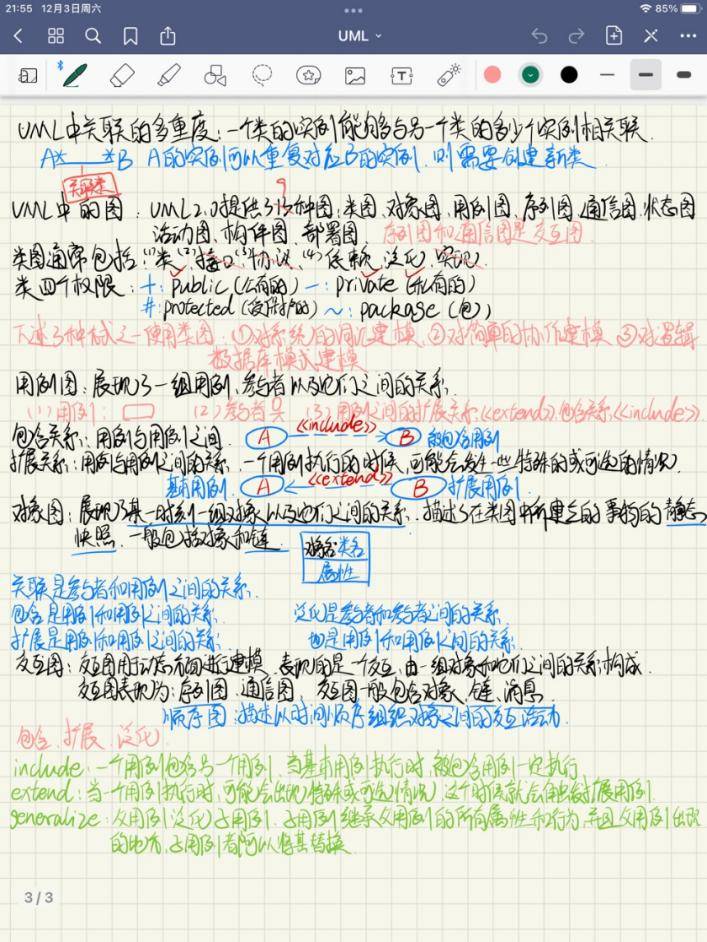 21:55 12月3日周六
85%
UML
UML中关联的多重度：一个类的实例能够与另一个类的多少个实例相关联.
A* *B A的实例可以重复对应B的实例，则需要创建新类
关联类
9
UML中的图：UML2.0提供了13种图：类图、对象图、用例图、序列图、通信图、状态图
活动图、构件图、部署图. 序列图和通信图是交互图
类图通常包括：(1)类 (2)接口 (3)协议 (4)依赖、泛化、实现
类四个权限：+：public（公有的） -：private（私有的）
#：protected（受保护的） ~：package（包）
下述3种方式之一使用类图：①对系统的词汇建模 ②对简单的协作建模 ③对逻辑
数据库模式建模
用例图：展现了一组用例、参与者以及他们之间的关系.
(1)用例： (2)参与者 (3)用例之间的扩展关系<<extend>>、包含关系<<include>>
包含关系：用例与用例之间. A <<include>> B 被包含用例
扩展关系：用例与用例之间的关系，一个用例执行的时候，可能会发生一些特殊的或可选的情况.
基本用例 A <<extend>> B 扩展用例
对象图：展现了某一时刻一组对象以及他们之间的关系. 描述了在类图中所建立的事物的静态
快照. 一般包括对象和链. 对象名：类名
属性
关联是参与者和用例之间的关系.
包含是用例和用例之间的关系. 泛化是参与者和参与者之间的关系.
扩展是用例和用例之间的关系. 也是用例和用例之间的关系.
交互图：交互图用于动态方面进行建模、表现的是一个交互，由一组对象和它们之间的关系构成.
交互图表现为：序列图、通信图、交互图一般包含对象、链、消息.
顺序图：描述以时间顺序组织对象之间的交互活动.
包含、扩展、泛化
include：一个用例包含另一个用例，当基本用例执行时，被包含用例一定执行
extend：当一个用例执行时，可能会出现特殊或可选情况，这个时候就会触发扩展用例.
generalize：父用例泛化子用例，子用例继承父用例的所有属性和行为，并且父用例出现
的地方，子用例都可以将其替换.
3/3